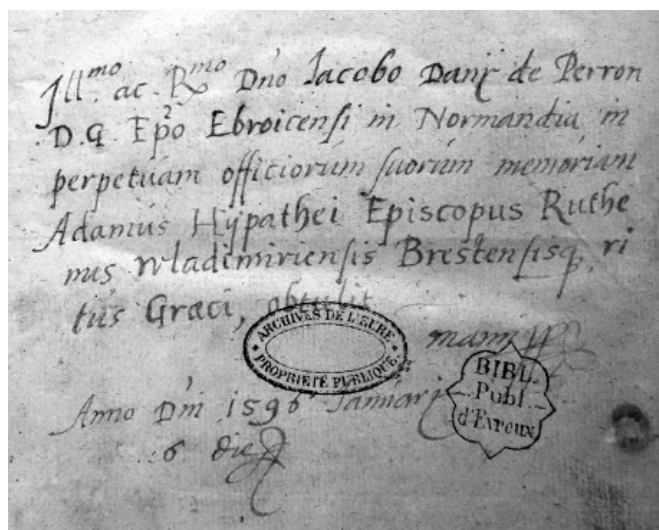 Jll.mo ac Rmo Dno Iacobo Dauÿ de Perron
D.G. Epo Ebroicensi in Normandia, in
perpetuam officiorum suorum memoriam
Adamus Hypathei Episcopus Ruthe
nus wladimiriensis Brestensisq, ri
tus Græci, obtulit
manu
ARCHIVES DE L'EURE
PROPRIÉTÉ PUBLIQUE.
BIBL.
Publ
d'Evreux
Anno Dni 1596 Januarÿ
6 die